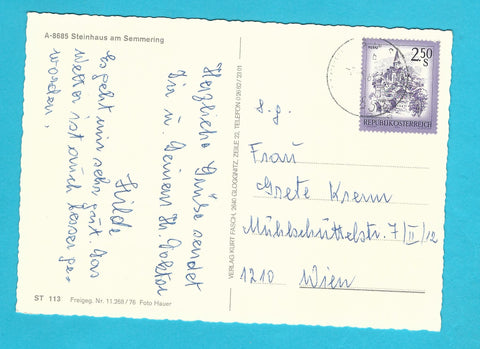 A-8685 Steinhaus am Semmering
Herzliche Grüße sendet
Dir u. Deinem Hr. Doktor
Hilde
Es geht mir sehr gut. Das
Wetter ist auch besser ge-
worden.
ST 113 Freigeg. Nr. 11.258/76 Foto Hauer
VERLAG KURT FASCH, 2640 GLOGGNITZ, ZEILE 22, TELEFON 0 26 62 / 23 01
2.50
S
REPUBLIK ÖSTERREICH
S.g.
Frau
Grete Krenn
Mühlschüttelstr. 7/II/12
1210 Wien